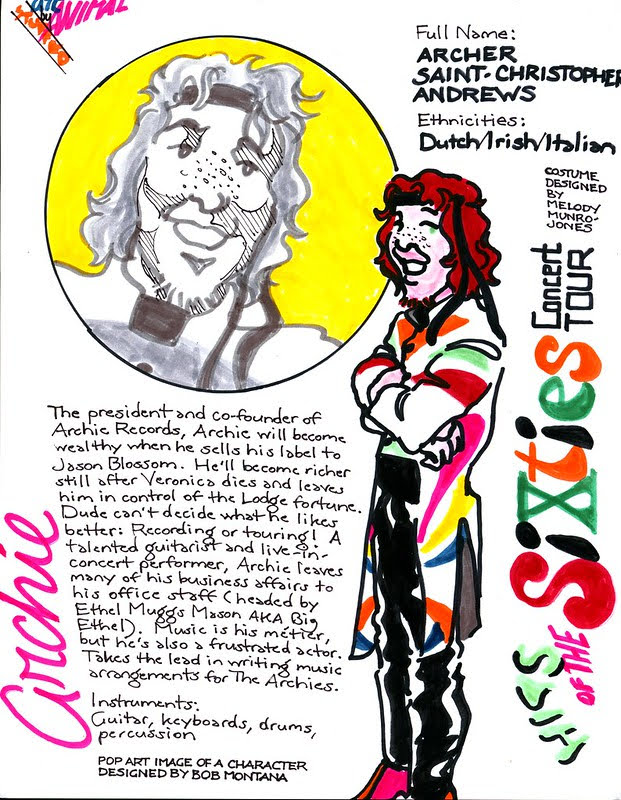 by
ANIMAL
Full Name:
ARCHER
SAINT-CHRISTOPHER
ANDREWS
Ethnicities:
Dutch/Irish/Italian
COSTUME
DESIGNED
BY
MELODY
MUNRO-
JONES
HITS
OF THE
Sixties
Concert
TOUR
Archie
The president and co-founder of
Archie Records, Archie will become
wealthy when he sells his label to
Jason Blossom. He'll become richer
still after Veronica dies and leaves
him in control of the Lodge fortune.
Dude can't decide what he likes
better: Recording or touring! A
talented guitarist and live-in-
concert performer, Archie leaves
many of his business affairs to
his office staff (headed by
Ethel Muggs Mason AKA Big
Ethel). Music is his métier,
but he's also a frustrated actor.
Takes the lead in writing music
arrangements for The Archies.
Instruments:
Guitar, keyboards, drums,
percussion
POP ART IMAGE OF A CHARACTER
DESIGNED BY BOB MONTANA